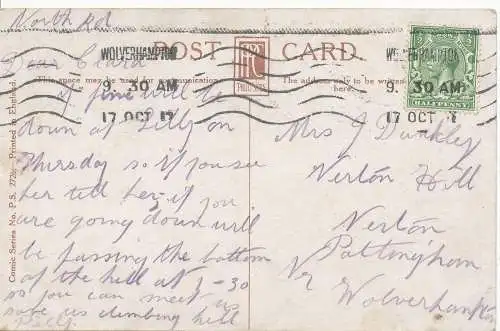 North Rd
WOLVERHAMPTON
9. 30 AM
17 OCT 1
POST CARD
This space may be used for communication
The address only to be written
here.
9. 30 AM
17 OCT 1
HALFPENNY
Comic Series No. P.S. Printed in England.
Dear Clara
I fine will be
down at Lilly on
Thursday so if you see
her tell her if you
are going down will
be passing the bottom
of the hill at 7-30
so you can meet us
save us climbing hill
Mrs J Dunkley
Nerton Hill
Nerton
Pattingham
Nr
Wolverhampton